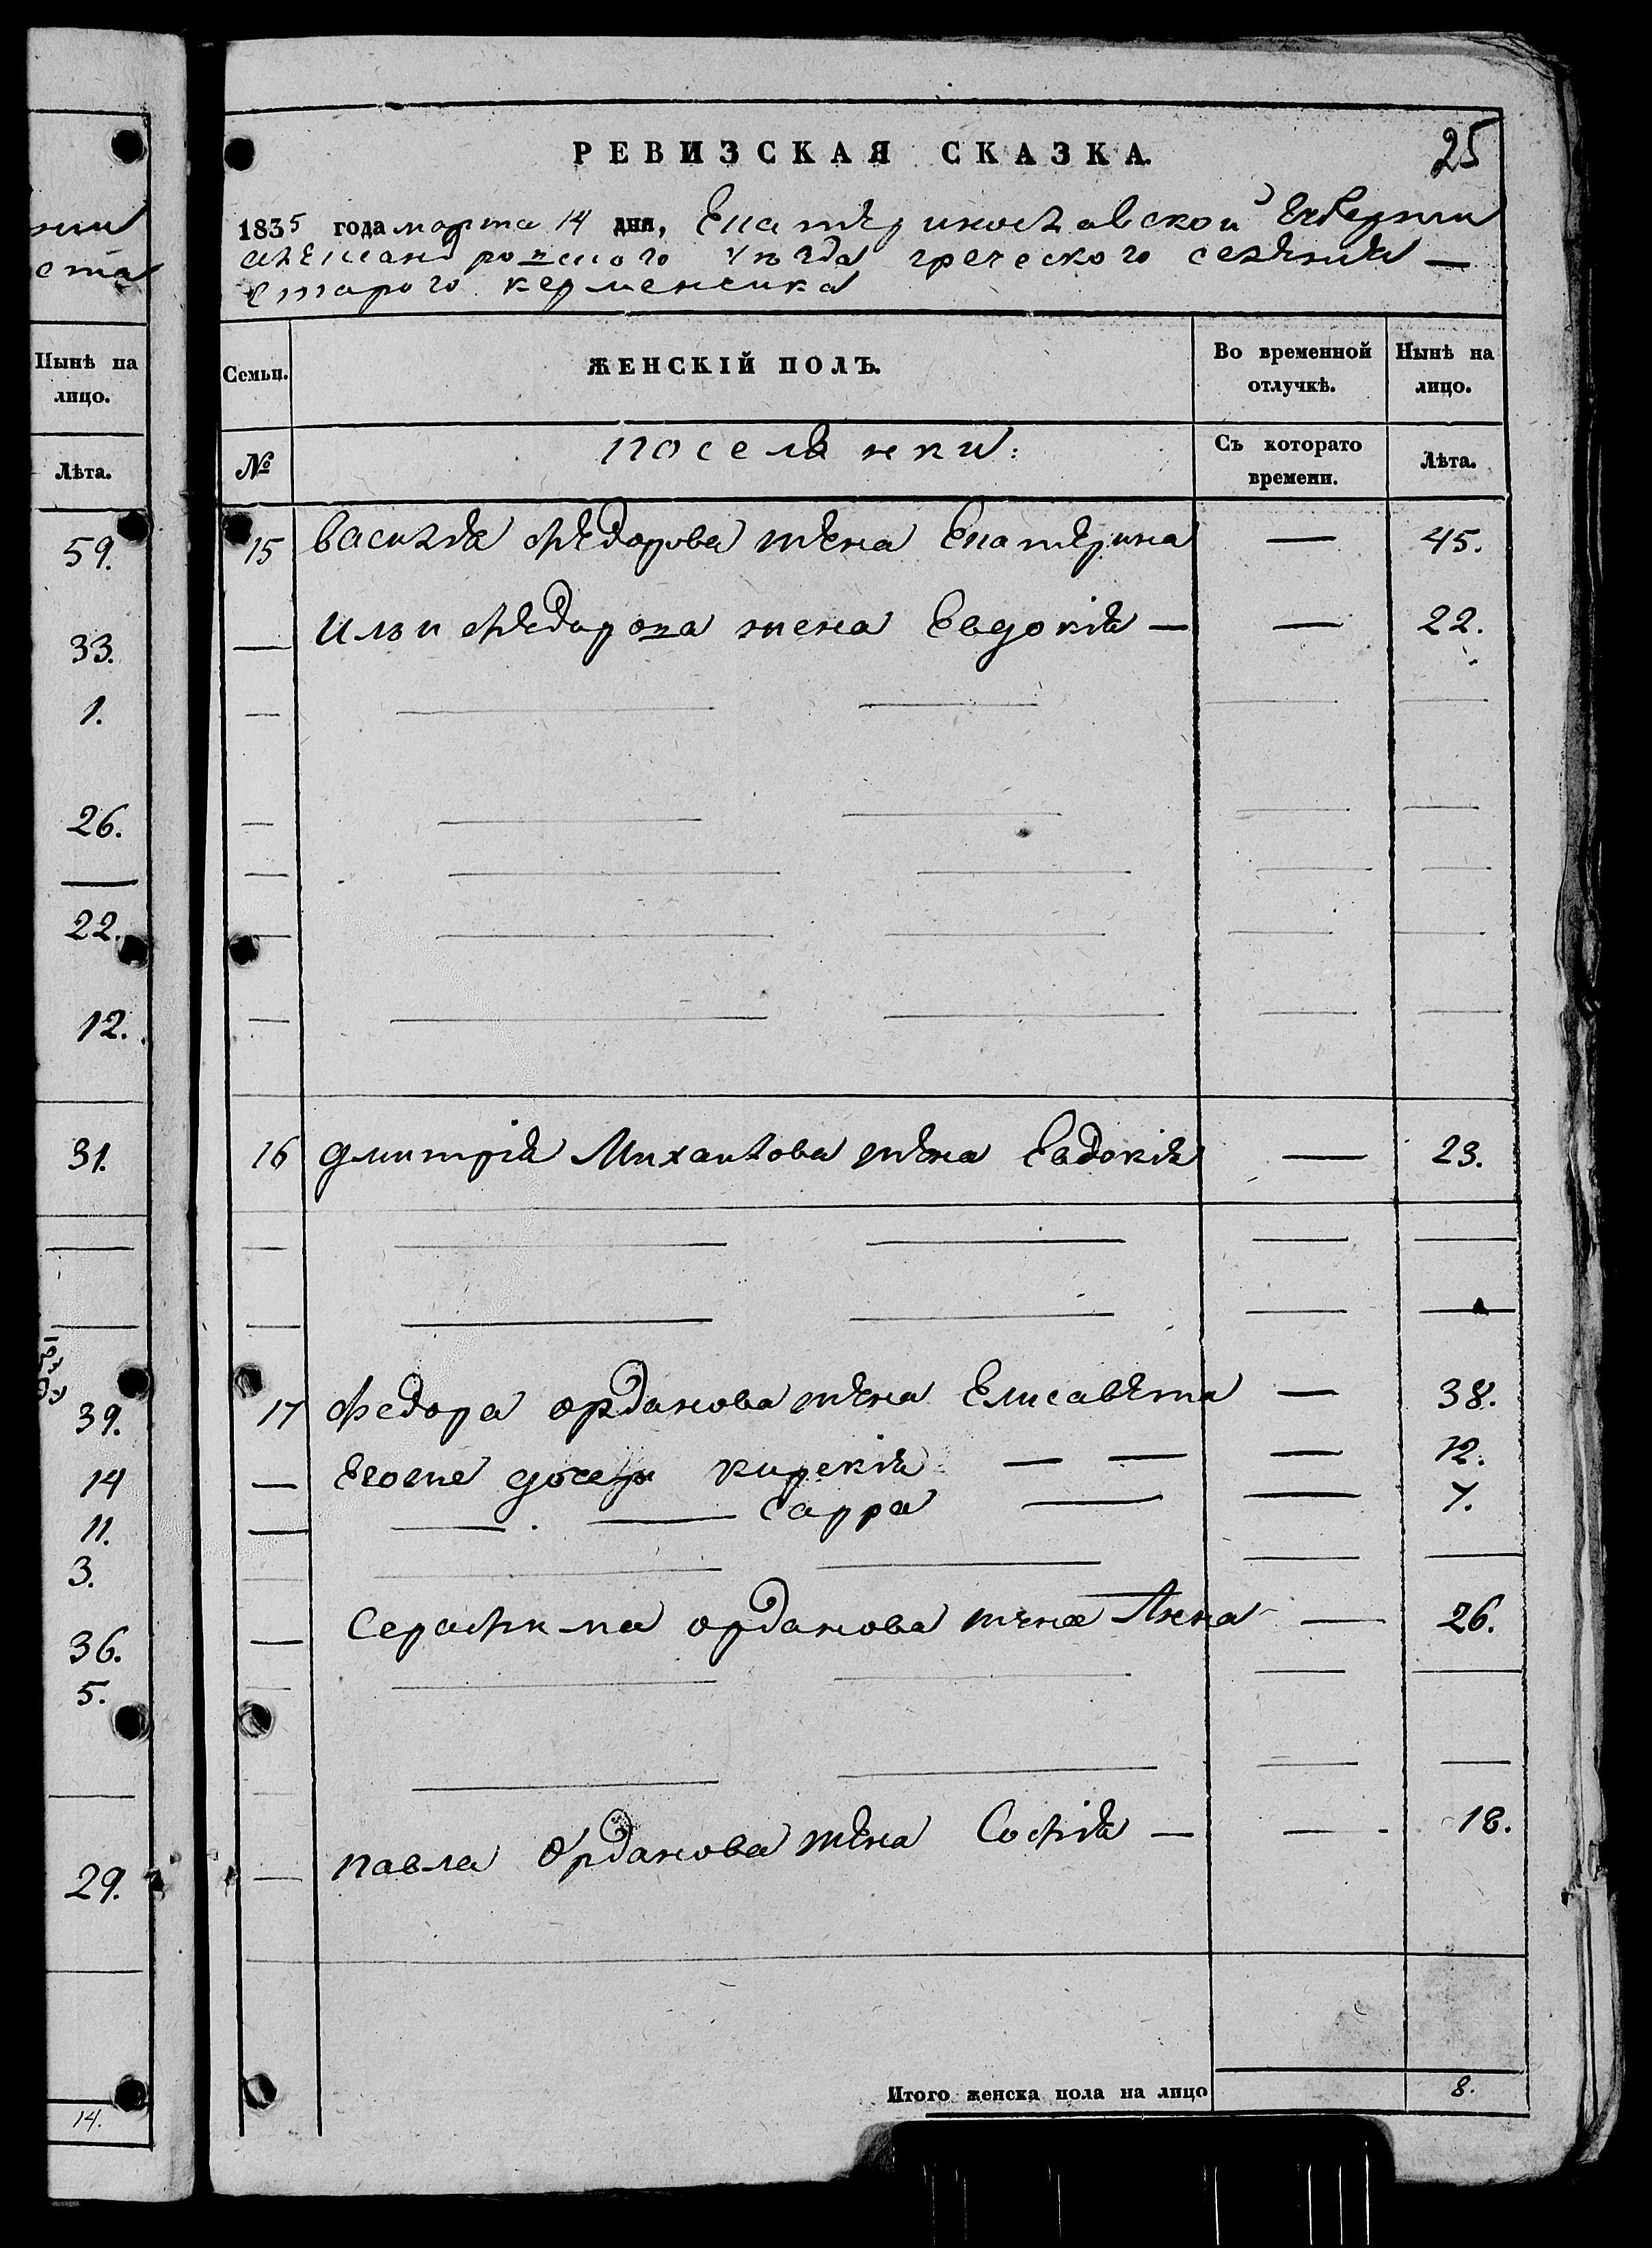 нии
ста
Нынѣ на
лицо.
Лѣта.
59.
33.
1.
26.
22.
12.
31.
39.
14
11.
3.
36.
5.
29.
14.
25
РЕВИЗСКАЯ СКАЗКА.
1835 года марта 14 дня, Екатериносlавской Губернии
александровского уѣзда греческого селения —
старого керменчика
Семьи. ЖЕНСКІЙ ПОЛЪ. Во временной отлучкѣ. Нынѣ на лицо.
№ поселянки: Съ которато времени. Лѣта.
15 василя федорова жена Екатерина — 45.
— Ильи федорова жена Евдокія — — 22.
16 дмитрія Михаилова жена Евдокія — 23.
17 федора орданова жена Елисавета — 38.
— Егоже дочери кирекія — — — 12.
— — . — Сарра — — 7.
— Серафима орданова жена Анна — 26.
— павла Орданова жена Софія — — 18.
Итого женска пола на лицо 8.